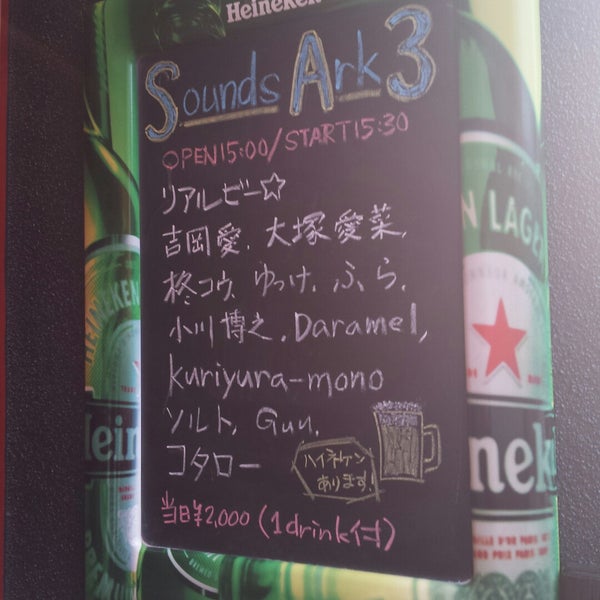 Heineken
Sounds Ark 3
OPEN15:00/START15:30
リアルビー☆
吉岡愛、大塚愛菜、
柊コウ、ゆっけ、ふら、
小川博之、Daramel,
kuriyura-mono
ソルト、Guu,
コタロー
ハイネケン
あります!
当日¥2,000 (1drink付)
N LAGER
HEINEKEN
Hein
PREMIUM
Heineke